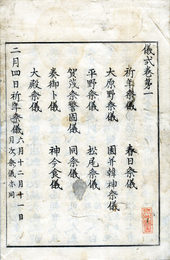 儀式卷第一
祈年祭儀
春日祭儀
大原野祭儀
園并韓神祭儀
平野祭儀
松尾祭儀
賀茂祭警固儀
同祭儀
奏御卜儀
神今食儀
大殿祭儀
二月四日祈年祭儀 六月十二月十一日
月次祭儀亦同